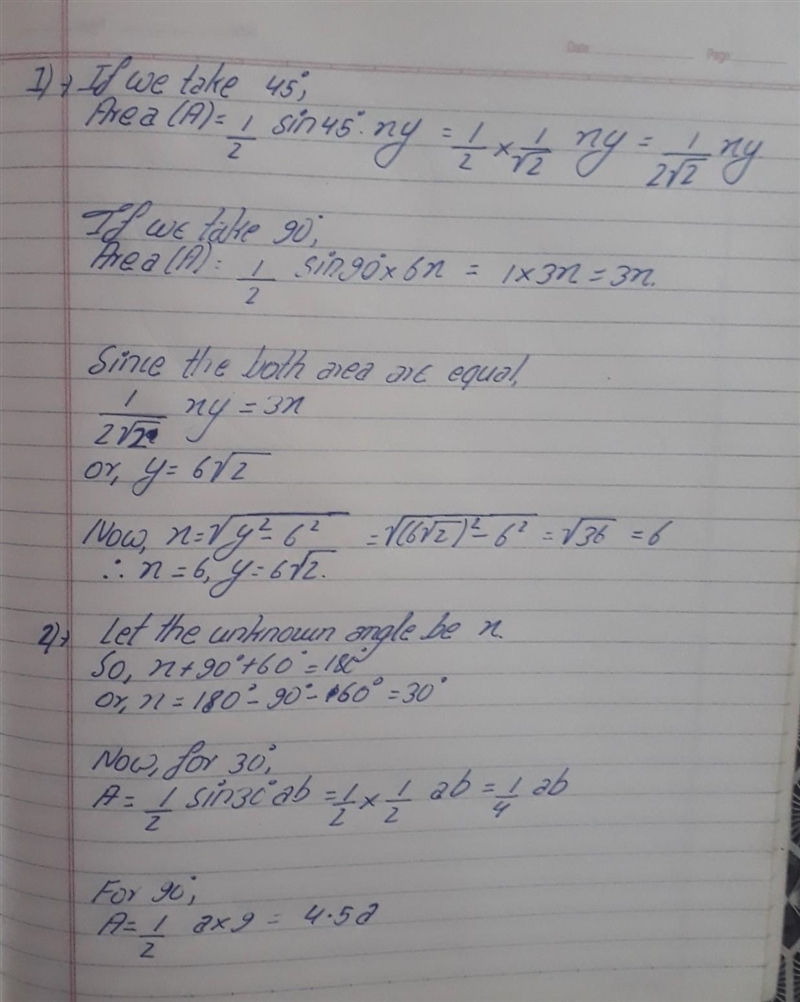 Date Page
1)→ If we take 45°,
Area (A) = 1/2 sin45°. xy = 1/2 × 1/√2 xy = 1/2√2 xy
If we take 90°,
Area (A) = 1/2 sin90° × 6x = 1×3x = 3x.
Since the both area are equal,
1/2√2 xy = 3x
or, y = 6√2
Now, x = √y²-6² = √(6√2)²-6² = √36 = 6
∴ x = 6, y = 6√2.
2)→ Let the unknown angle be x.
So, x+90°+60° = 180°
or, x = 180°-90°-60° = 30°
Now, for 30°,
A = 1/2 sin30° ab = 1/2 × 1/2 ab = 1/4 ab
For 90°,
A = 1/2 a×9 = 4.5a